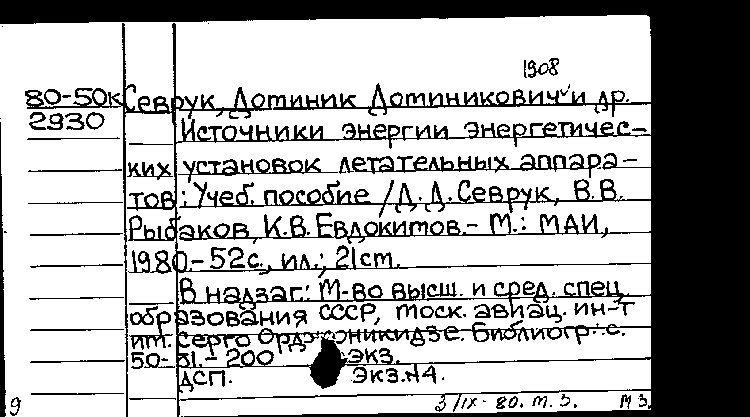 1908
80-50к Севрук, Доминик Доминикович и др.
2930 Источники энергии энергетичес-
ких установок летательных аппара-
тов: Учеб. пособие / Д. Д. Севрук, В.В.
Рыбаков, К.В. Евдокимов.- М.: МАИ,
1980.- 52с., ил.; 21см.
В надзаг.: М-во высш. и сред. спец.
образования СССР, Моск. авиац. ин-т
им. Серго Орджоникидзе. Библиогр.: с.
50-51.- 200 экз.
ДСП. Экз.N4.
3/IX-80. М.З. МЗ.
9